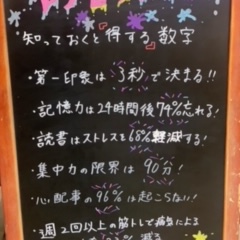 "知っておくと『得する』数字
・第一印象は3秒で決まる!!
・記憶力は24時間後74%忘れる!
・読書はストレスを68%軽減する!
・集中力の限界は90分!
・心配事の96%は起こらない!
・週2回以上の筋トレで病気による
減る